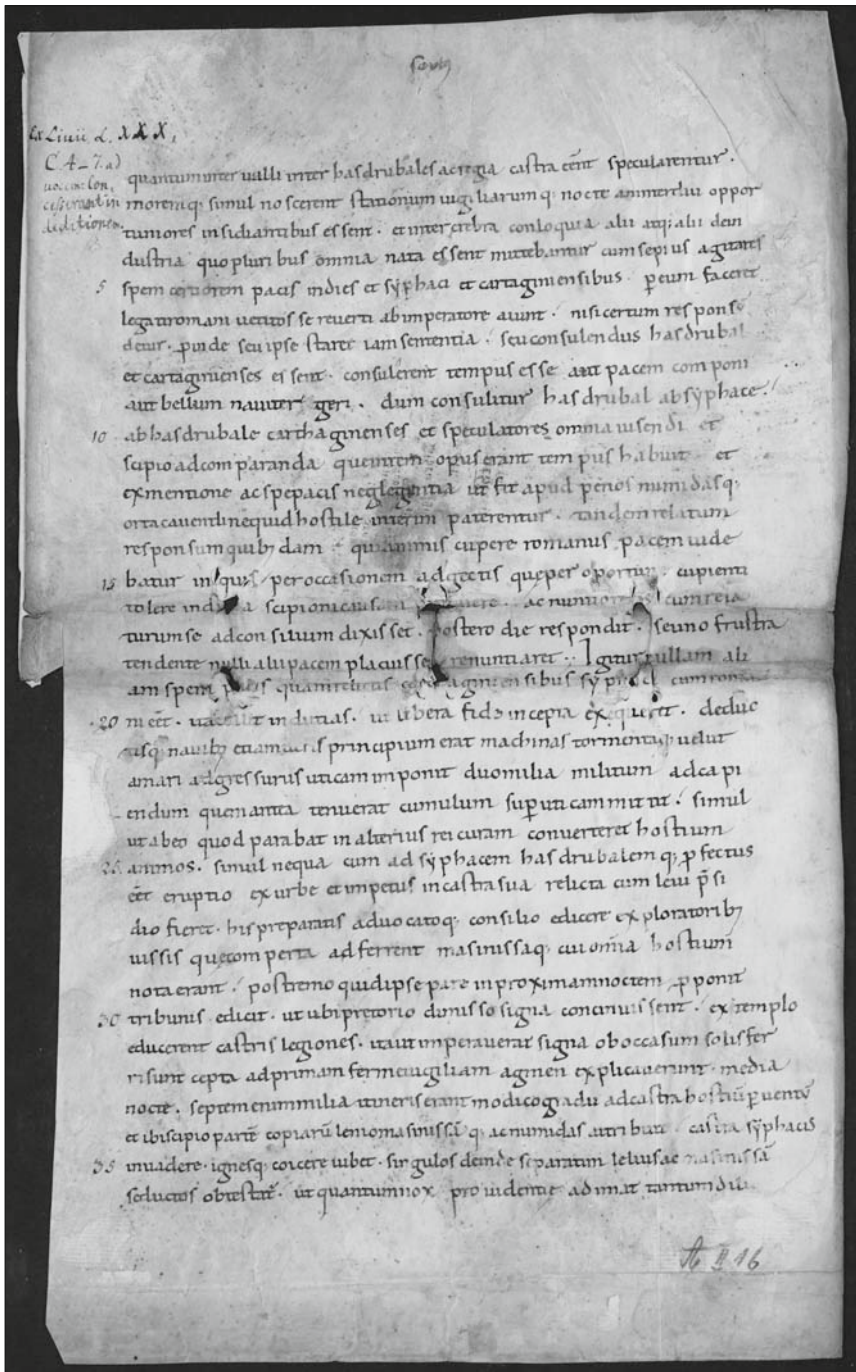 Ex Livii L. XXX,
C. 4–7. ad
quantum inter ualli inter hasdrubales ac regia castra eent specularentur.
morem q; simul noscerent stationum uigiliarum q; nocte an interdiu oppor
tuniores insidiantibus essent. et inter crebra conloquia alii atq; alii dein
dustria quo pluribus omnia nata essent mittebantur cum sepius agitares
5 spem certiorem pacis indies et sÿphaci et cartaginiensibus. p eum faceret
legati romani uetitos se reuerti ab imperatore aiunt. nisi certum responsū
detur. pinde seu ipse staret iam sententia. seu consulendus hasdrubal
et cartaginienses essent. consulerent tempus esse aut pacem componi
aut bellum nauiter geri. dum consulitur hasdrubal ab sÿphace.
10 ab hasdrubale carthaginenses et speculatores omnia uisendi et
scipio ad comparanda que inrem opus erant tempus habuit et
ex mentione ac spe pacis neglegentia ut fit apud penos numidas q;
orta cauendi nequid hostile interim paterentur. tandem relatum
responsum quib; dam quia nimis cupere romanus pacem uide
15 batur iniquis per occasionem adgectis que per oportun cupienti
tolere scipioni causam ac nuntio cum reia
turum se ad consilium dixisset. postero die respondit. se uno frustra
tendente nulli alii pacem placuisse renuntiaret. Igitur nullam ali
am spem pacis quam relictis aginiensibus sÿphaci cum
20 ni eet. ut libera fide incepta exequeret. deduc
tisq; nauib; etiam ueris principium erat machinas tormentaq; uelut
amari adgressurus uticam imponit duo milia militum ad capi
endum quem antea tenuerat cumulum sup uticam mittit. simul
ut ab eo quod parabat in alterius rei curam converteret hostium
25 animos. simul nequa cum ad sÿphacem hasdrubalem q; pfectus
eet eruptio ex urbe et impetus in castra sua relicta cum leui p̄si
dio fieret. his preparatis aduocatoq; consilio edicere exploratorib;
iussis que comperta adferrent masinissaq; cui omīa hostium
nota erant. postremo quid ipse pare in proximam noctem pponit
30 tribunis edicit. ut ubi pretorio dimisso signa concinuissent. extemplo
educerent castris legiones. ita ut imperauerat signa ob occasum solis fer
ri sunt cepta ad primam ferme uigiliam agmen explicauerunt. media
nocte. septem enim milia itineris erant modico gradu ad castra hostiū puentū
et ibi scipio partē copiarū lenio masinissā q; ac numidas attribuit. castra sÿphacis
35 inuadere. ignesq; coicere iubet. singulos deinde separatim lelius ac masinissā
seductos obtestat. ut quantum nox prouidentie adimat tantum
A II 16